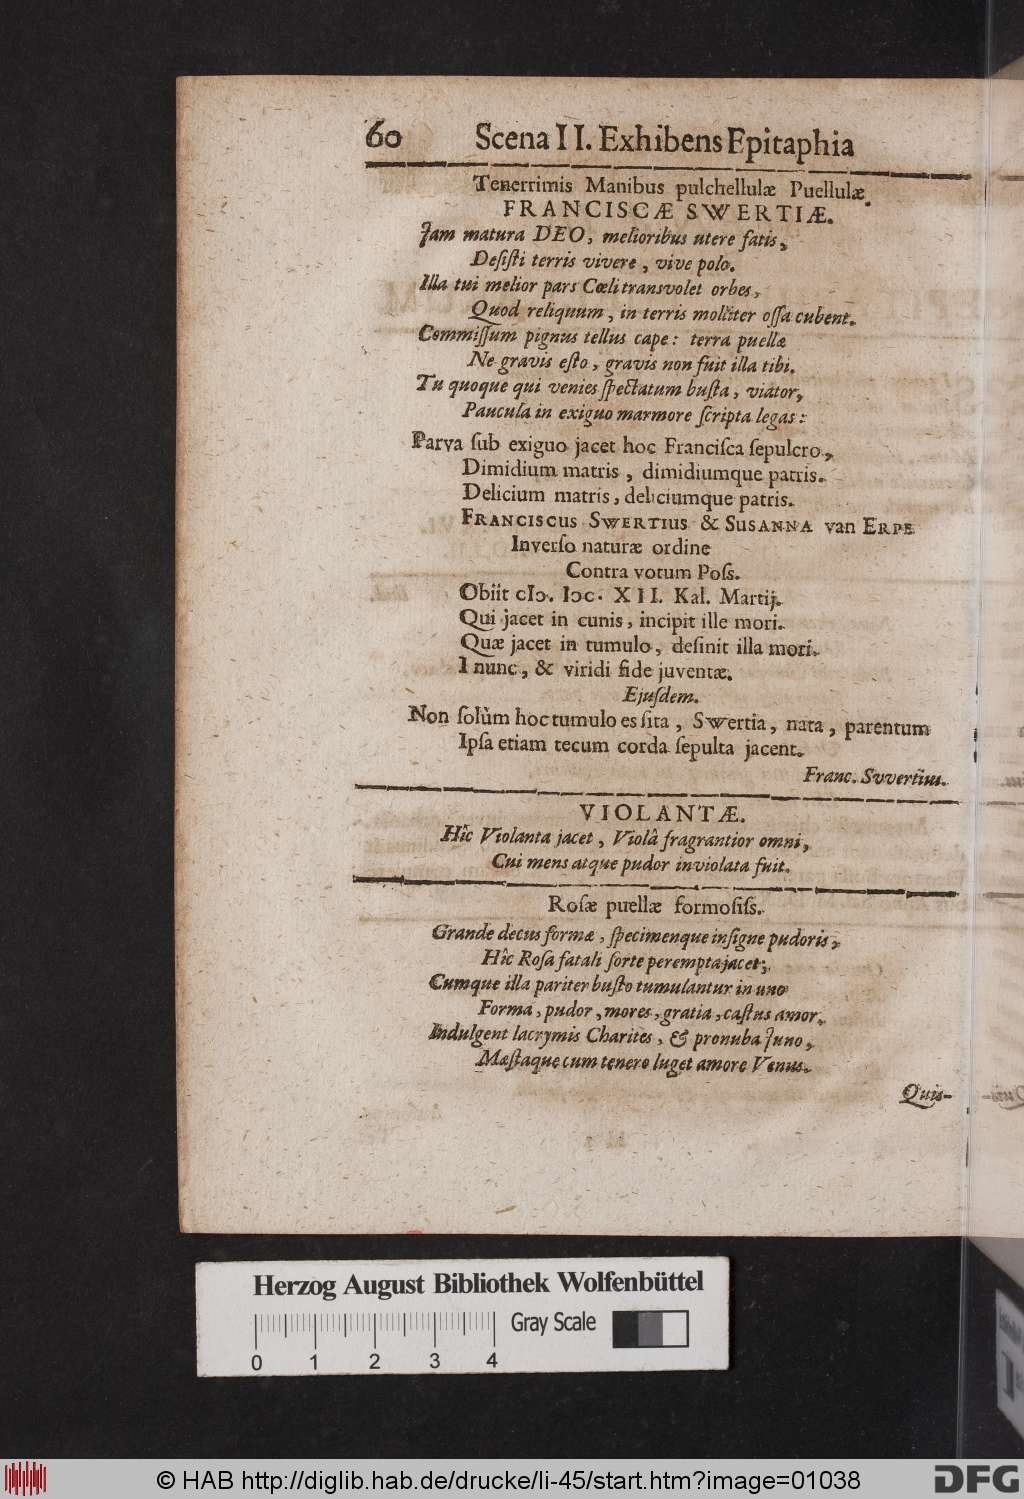 60 Scena II. Exhibens Epitaphia
Tenerrimis Manibus pulchellulæ Puellulæ
FRANCISCÆ SWERTIÆ.
Jam matura DEO, melioribus utere fatis,
Desisti terris vivere, vive polo.
Illa tui melior pars Cœli transvolet orbes,
Quod reliquum, in terris molliter ossa cubent.
Commissum pignus tellus cape: terra puellæ
Ne gravis esto, gravis non fuit illa tibi.
Tu quoque qui venies spectatum busta, viator,
Paucula in exiguo marmore scripta legas:
Parva sub exiguo jacet hoc Francisca sepulcro,
Dimidium matris, dimidiumque patris.
Delicium matris, deliciumque patris.
FRANCISCUS SWERTIUS & SUSANNA van ERPE
Inverso naturæ ordine
Contra votum Poss.
Obiit cIↄ. Iↄc. XII. Kal. Martij.
Qui jacet in cunis, incipit ille mori.
Quæ jacet in tumulo, desinit illa mori.
I nunc, & viridi fide juventæ.
Ejusdem.
Non solùm hoc tumulo es sita, Swertia, nata, parentum
Ipsa etiam tecum corda sepulta jacent.
Franc. Svvertius.
VIOLANTÆ.
Hîc Violanta jacet, Violâ fragrantior omni,
Cui mens atque pudor inviolata fuit.
Rosæ puellæ formosiss.
Grande decus formæ, specimenque insigne pudoris,
Hîc Rosa fatali sorte perempta jacet;
Cumque illa pariter busto tumulantur in uno
Forma, pudor, mores, gratia, castus amor.
Indulgent lacrymis Charites, & pronuba Juno,
Mæstaque cum tenero luget amore Venus.
Quis-
Herzog August Bibliothek Wolfenbüttel
Gray Scale
0 1 2 3 4
© HAB http://diglib.hab.de/drucke/li-45/start.htm?image=01038
DFG